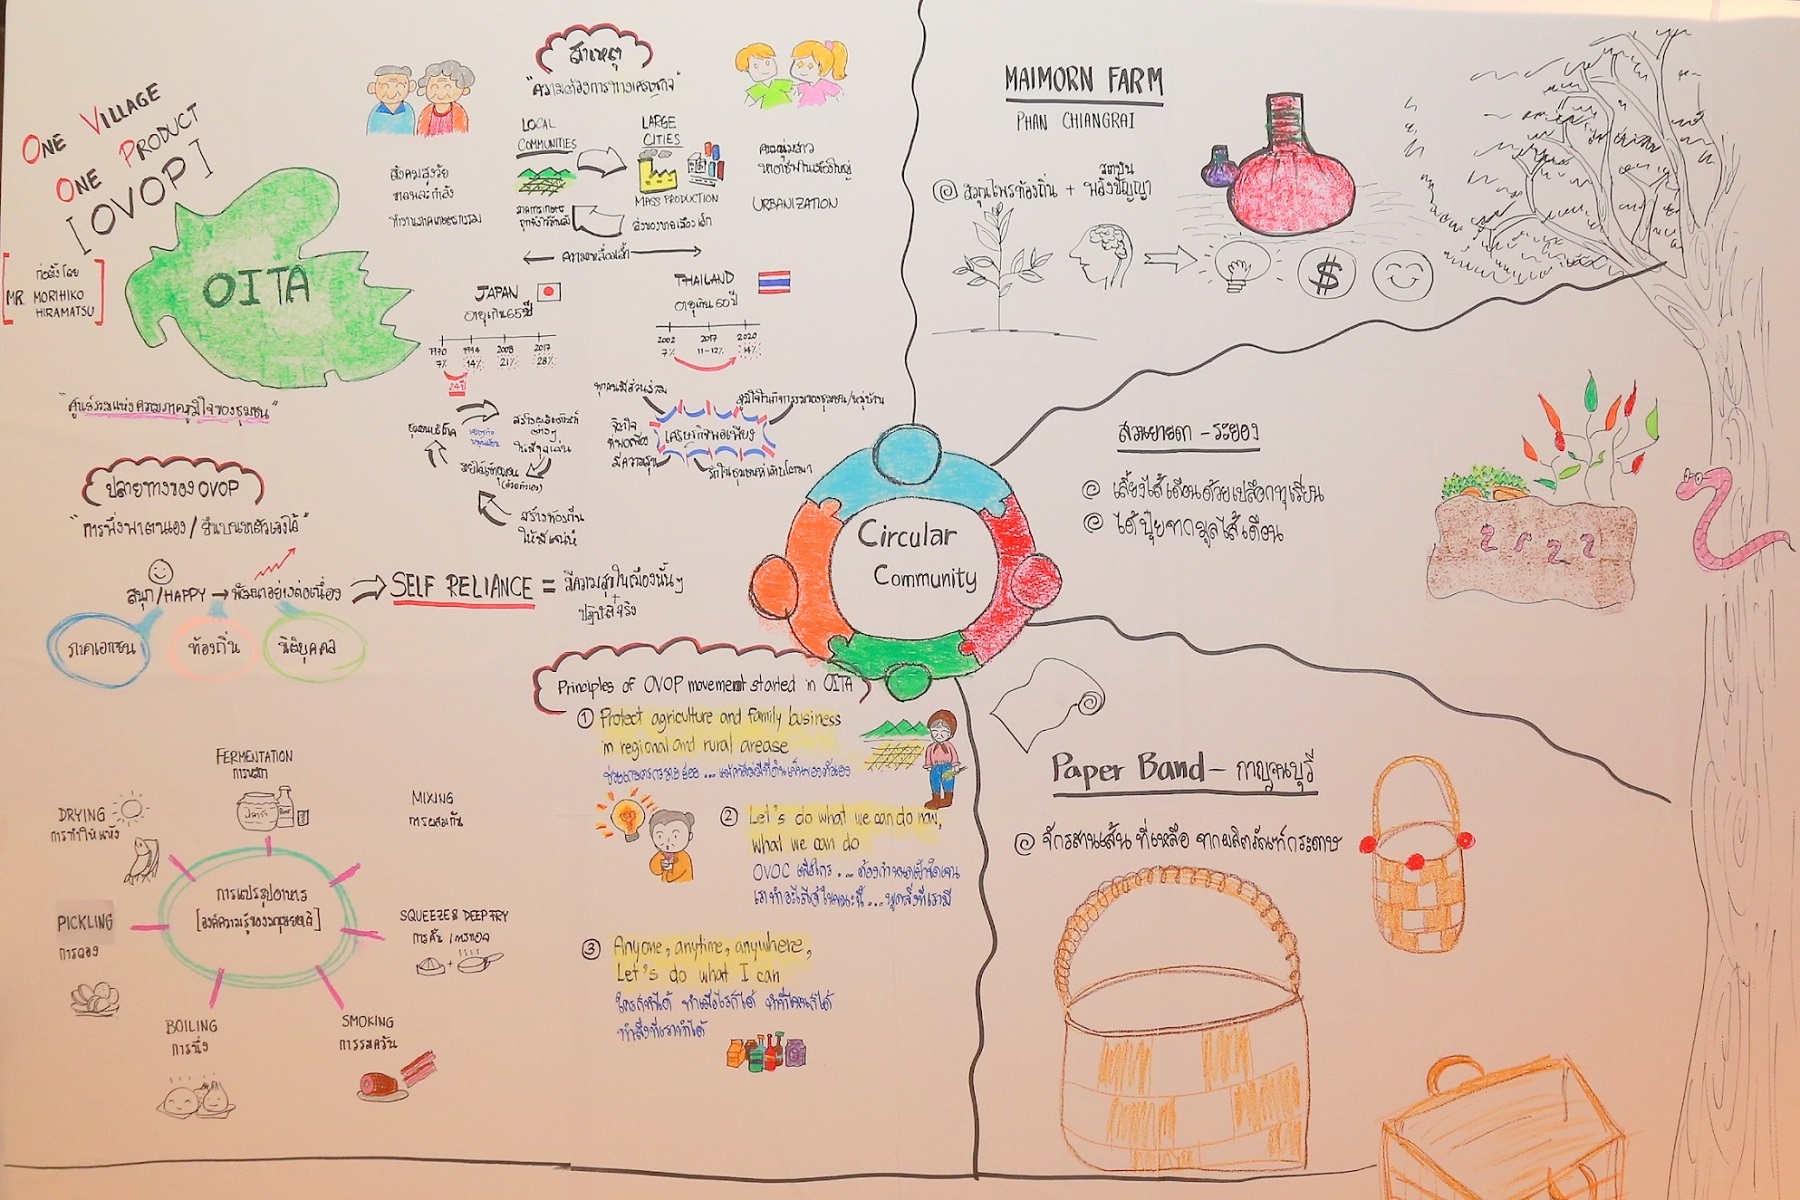 ONE VILLAGE
ONE PRODUCT
[OVOP]
ก่อตั้งโดย
MR. MORIHIKO
HIRAMATSU
OITA
"ศูนย์รวมแห่งความภาคภูมิใจของชุมชน"
ปลายทางของ OVOP
"การพึ่งพาตนเอง /
สนุก/HAPPY → พัฒนาอย่างต่อเนื่อง
SELF RELIANCE =
มีความสุขในเมืองนั้นๆ
+
ปฏิบัติจริง
ภาคเอกชน
ท้องถิ่น
นิติบุคคล
สาเหตุ
"ความต้องการทางเศรษฐกิจ"
สังคมสูงวัย
ขาดแคลนกำลัง
ทำงานภาคเกษตรกรรม
LOCAL
COMMUNITIES
LARGE
CITIES
MASS PRODUCTION
URBANIZATION
ความเหลื่อมล้ำ
JAPAN
อายุเกิน 65 ปี
1970 1994 2008 2017
7% 14% 21% 28%
24 ปี
THAILAND
อายุเกิน 60 ปี
2002 2017 2020
7% 11-12% 14%
ทุกคนมีส่วนร่วม
ภูมิใจในกิจกรรมของชุมชน/หมู่บ้าน
เศรษฐกิจพอเพียง
มีความสุข
รักในชุมชนที่เติบโตมา
ชุมชนบริโภค
สร้างท้องถิ่น
ให้มีเสน่ห์
Circular
Community
Principles of OVOP movement started in OITA
① Protect agriculture and family business
in regional and rural arease
② Let's do what we can do now,
what we can do
③ Anyone, anytime, anywhere,
Let's do what I can
ใครก็ทำได้ ทำเมื่อไรก็ได้ ทำที่ไหนก็ได้
ทำสิ่งที่เราทำได้
FERMENTATION
การหมัก
DRYING
การทำให้แห้ง
MIXING
การผสมกัน
การแปรรูปอาหาร
PICKLING
การดอง
SQUEEZE & DEEP FRY
การคั้น / การทอด
BOILING
การนึ่ง
SMOKING
การรมควัน
MAIMORN FARM
PHAN CHIANGRAI
@ สมุนไพรท้องถิ่น + พลังปัญญา
สวนยายดา - ระยอง
@ เลี้ยงไส้เดือนด้วยเปลือกทุเรียน
@ ได้ปุ๋ยจากมูลไส้เดือน
Paper Band - กาญจนบุรี
@ จักรสานเส้น ที่เหลือ จากผลิตภัณฑ์กระดาษ